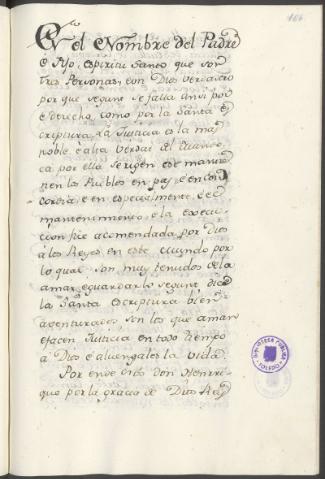 166
En el Nombre del Padre
é Fijo, espiritu Santo que son
tres Personas, é un Dios verdadero
por que segunt se falla ansi por
el derecho, como por la Santa es
criptura, la Justicia es la mas
noble é alta virtud del mundo
ca por ella se rigen é se mantie
nen los Pueblos en paz, é en con
cordia, é en especialmente, é el
mantenimiento, é la execu
cion fue acomendada por Dios
á los Reyes en este mundo por
lo qual son muy tenudos de la
amar, é guardar lo segunt dice
la Santa escriptura bien
aventurados son los que aman
é facen Justicia en todo tiempo
á Dios é aluengales la vida
Por ende Nos don Henrri
que por la gracia de Dios Rey
BIBLIOTECA PUBLICA
TOLEDO